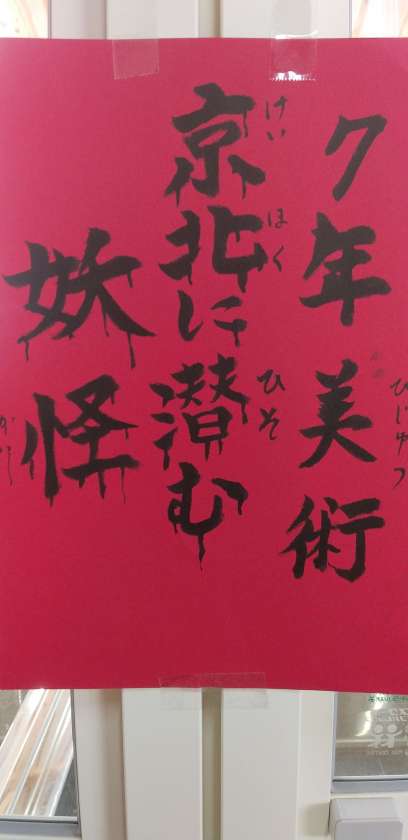 7年美術
びじゅつ
京北に潜む
けいほく
ひそ
妖怪